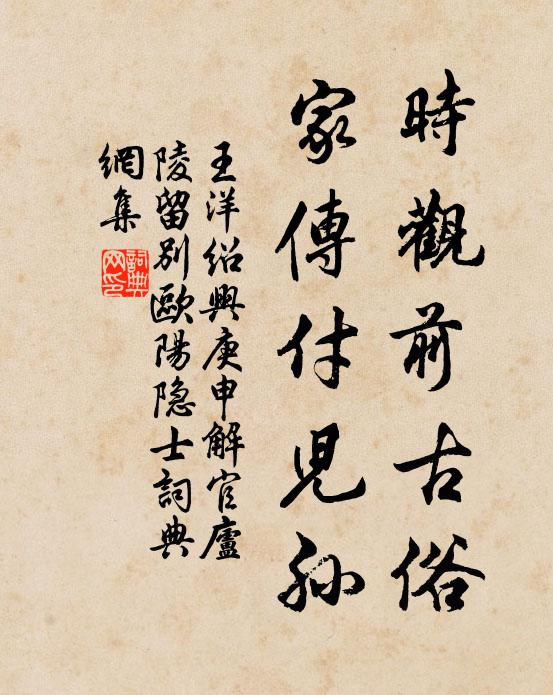 時觀前古俗
家傳付児孫
王洋绍興庚申解官廬
陵留别歐陽隐士詞典
網集
詞典網印